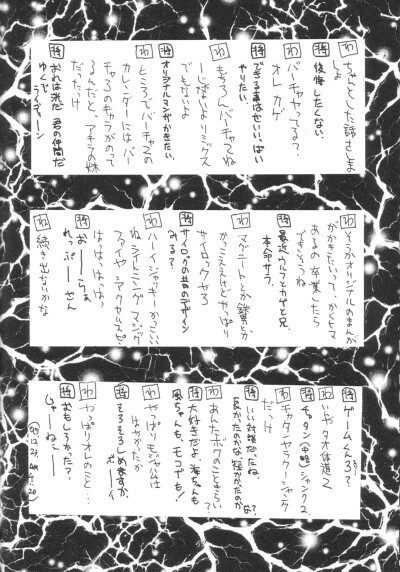 わ ちゃんとした話さしましょ
将 後悔したくない。
わ バーチャやってる?
オレ カゲ
将 できる事はせいいっぱいやりたい。
わ もちろんバーチャってね
ーじゃないよリミックスでもないよ
将 オリジナルマンガがかきたい。
わ ところでバーチャの
カレンダーにはバーチャ3のキャラがのて
るんだと、アキラの妹
だったけ
将 おれは光だ 君の仲間だ
ゆくぞ ライディーン
わ そっかオリジナルのまんが
がかきたいって、かくヒマ
あるの 卒業したら
できそうね
将 最近ベルフとカゲと兄
本命サラ
わ マグニートとか鎌男とか
かっこええけどやっぱり
サイロックやろ
将 サイロックの昔のデザイン
みる?
わ ハーイジャッキー かっこいい
ね ライトニング マシンガン
ファイヤー アクセルスピン
はっはっはっはっ
将 おーらぁ
れっぷーけん
わ 続き出ないかな
将 ゲームくん3で?
わ いや大体道2
将 チャタン(中略)ジャンク2
わ チャタンヤラクージャンク
だっけ
将 いい対談だったね
長かったのかな、短かかったのかな。
わ あんたボクのこときらい?
将 大好きだよ、海ちゃんも
風ちゃんも、モコナも!
わ やっぱりモジャムは
はやかったか
将 そろそろしめますか。
ボーイ
わ やっぱりオレのこと…
将 おもしろかった?
じゃーねー